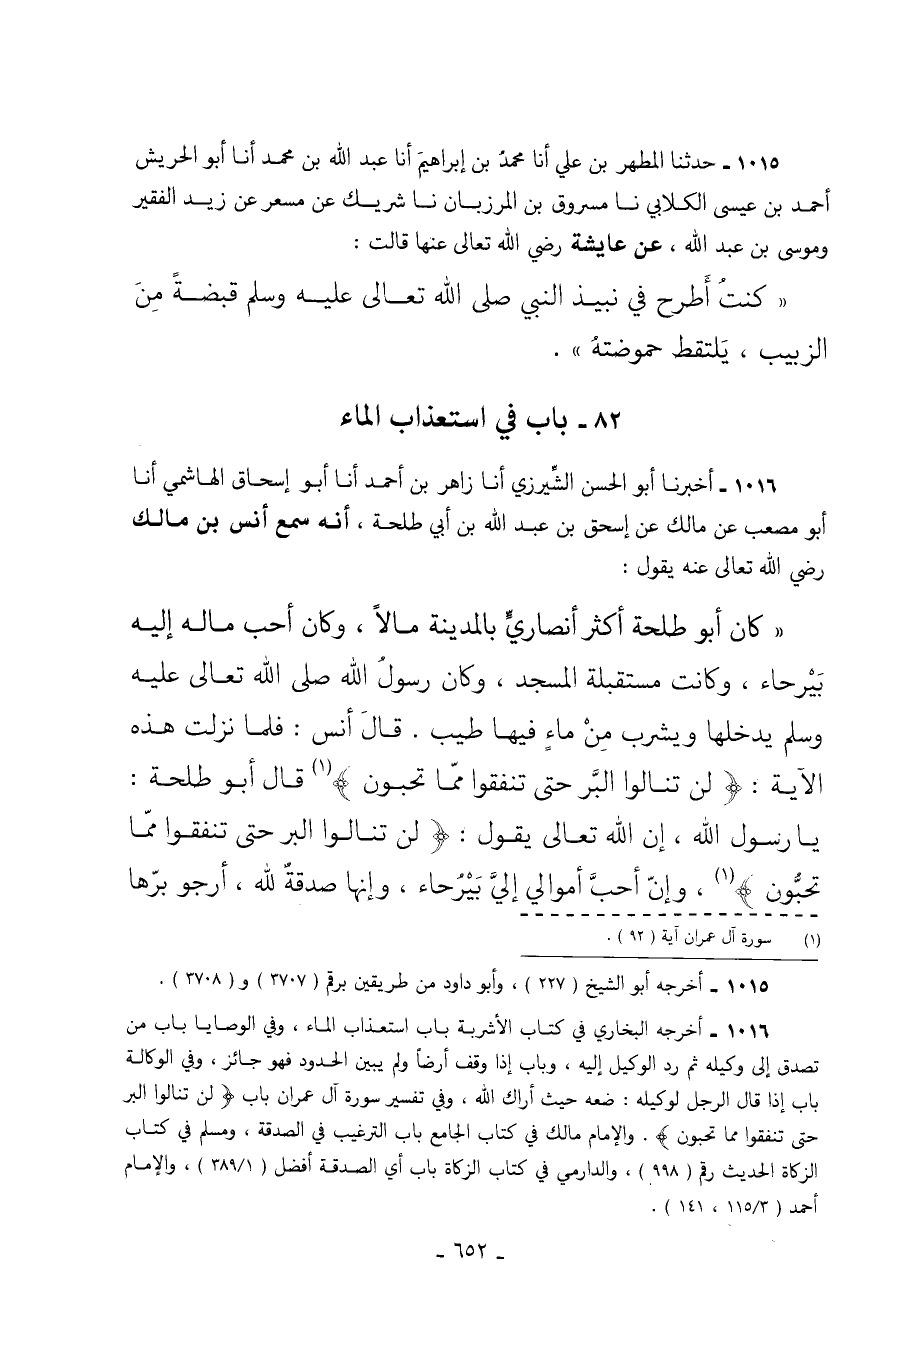 ١٠١٥ ـ حدثنا المطهر بن علي أنا محمدُ بن إبراهيمَ أنا عبد الله بن محمد أنا أبو الحريش
أحمد بن عيسى الكلابي نا مسروق بن المرزبان نا شريك عن مسعر عن زيد الفقير
وموسى بن عبد الله ، عن عايشة رضي الله تعالى عنها قالت :
« كنتُ أَطرح في نبيذ النبي صلى الله تعالى عليه وسلم قبضةً مِنَ
الزبيب ، يَلتقط حموضتهُ » .
٨٢ ـ باب في استعذاب الماء
١٠١٦ ـ أخبرنا أبو الحسن الشِّيرزي أنا زاهر بن أحمد أنا أبو إسحاق الهاشمي أنا
أبو مصعب عن مالك عن إسحق بن عبد الله بن أبي طلحة ، أنه سمع أنس بن مالك
رضي الله تعالى عنه يقول :
« كان أبو طلحة أكثر أنصاريٍّ بالمدينة مالاً ، وكان أحب ماله إليه
بَيْرحاء ، وكانت مستقبلة المسجد ، وكان رسولُ الله صلى الله تعالى عليه
وسلم يدخلها ويشرب مِنْ ماءٍ فيها طيب . قالَ أنس : فلما نزلت هذه
الآية : ﴿ لن تنالوا البَّر حتى تنفقوا ممّا تحبون ﴾(١) قال أبو طلحة :
يا رسول الله ، إن الله تعالى يقول : ﴿ لن تنالوا البر حتى تنفقوا ممّا
تحبُّون ﴾(١) ، وإنّ أحبَّ أموالي إليَّ بَيْرُحاء ، وإنها صدقةٌ لله ، أرجو برّها
(١) سورة آل عمران آية ( ٩٢ ) .
١٠١٥ ـ أخرجه أبو الشيخ ( ٢٢٧ ) ، وأبو داود من طريقين برقم ( ٣٧٠٧ ) و ( ٣٧٠٨ ) .
١٠١٦ ـ أخرجه البخاري في كتاب الأشربة باب استعذاب الماء ، وفي الوصايا باب من
تصدق إلى وكيله ثم رد الوكيل إليه ، وباب إذا وقف أرضاً ولم يبين الحدود فهو جائز ، وفي الوكالة
باب إذا قال الرجل لوكيله : ضعه حيث أراك الله ، وفي تفسير سورة آل عمران باب ﴿ لن تنالوا البر
حتى تنفقوا مما تحبون ﴾ . والإمام مالك في كتاب الجامع باب الترغيب في الصدقة ، ومسلم في كتاب
الزكاة الحديث رقم ( ٩٩٨ ) ، والدارمي في كتاب الزكاة باب أي الصدقة أفضل ( ٣٨٩/١ ) ، والإمام
أحمد ( ١١٥/٣ ، ١٤١ ) .
ـ ٦٥٢ ـ